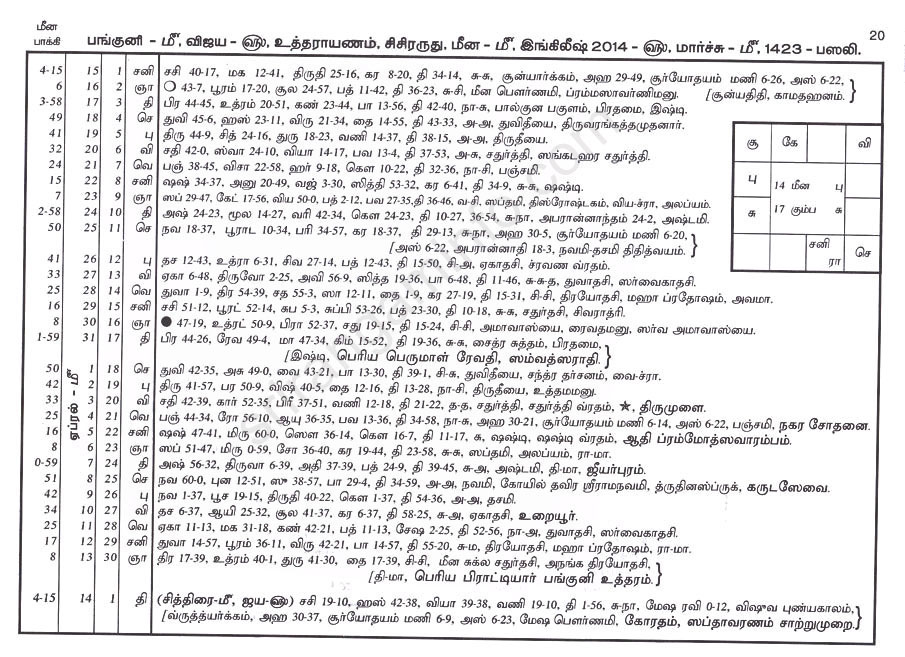 மீன
பாக்கி
பங்குனி - மீ, விஜய - ௵, உத்தராயணம், சிசிரருது, மீன - மீ, இங்கிலீஷ் 2014 - ௵, மார்ச்சு - மீ, 1423 - பஸலி.
20
4-15 15 1 சனி சசி 40-17, மக 12-41, திருதி 25-16, கர 8-20, தி 34-14, சு-சு, சூன்யார்க்கம், அஹ 29-49, சூர்யோதயம் மணி 6-26, அஸ் 6-22,
6 16 2 ஞா ❍ 43-7, பூரம் 17-20, சூல 24-57, பத் 11-42, தி 36-23, சு-சி, மீன பௌர்ணமி, ப்ரம்மஸாவர்ணிமனு. [சூன்யதிதி, காமதஹனம்.
3-58 17 3 தி பிர 44-45, உத்ரம் 20-51, கண் 23-44, பா 13-56, தி 42-40, நா-சு, பால்குன பகுளம், பிரதமை, இஷ்டி.
49 18 4 செ துவி 45-6, ஹஸ் 23-11, விரு 21-34, தை 14-55, தி 43-33, அ-அ, துவிதீயை, திருவரங்கத்தமுதனார்.
41 19 5 பு திரு 44-9, சித் 24-16, துரு 18-23, வணி 14-37, தி 38-15, அ-அ, திருதீயை.
32 20 6 வி சதி 42-0, ஸ்வா 24-10, வியா 14-17, பவ 13-4, தி 37-53, அ-சு, சதுர்த்தி, ஸங்கடஹர சதுர்த்தி.
24 21 7 வெ பஞ் 38-45, விசா 22-58, ஹர் 9-18, கௌ 10-22, தி 32-36, நா-சி, பஞ்சமி.
15 22 8 சனி ஷஷ் 34-37, அனு 20-49, வஜ் 3-30, ஸித்தி 53-32, கர 6-41, தி 34-9, சு-சு, ஷஷ்டி.
7 23 9 ஞா ஸப் 29-47, கேட் 17-56, விய 50-0, பத் 2-12, பவ 27-35, தி 36-46, வ-சி, ஸப்தமி, திஸ்ரோஷ்டகம், விய-ச்ரா, அலப்யம்.
2-58 24 10 தி அஷ் 24-23, மூல 14-27, வரி 42-34, கௌ 24-23, தி 10-27, 36-54, சு-நா, அபரான்னாந்தம் 24-2, அஷ்டமி.
50 25 11 செ நவ 18-37, பூராட 10-34, பரி 34-57, கர 18-37, தி 29-13, சு-நா, அஹ 30-5, சூர்யோதயம் மணி 6-20,
[அஸ் 6-22, அபரான்னாதி 18-3, நவமி-தசமி திதித்வயம்.
41 26 12 பு தச 12-43, உத்ரா 6-31, சிவ 27-14, பத் 12-43, தி 15-50, சி-அ, ஏகாதசி, ச்ரவண வ்ரதம்.
33 27 13 வி ஏகா 6-48, திருவோ 2-25, அவி 56-9, ஸித்த 19-36, பா 6-48, தி 11-46, சு-சு-த, துவாதசி, ஸர்வைகாதசி.
25 28 14 வெ துவா 1-9, திர 54-39, சத 55-3, ஸா 12-11, தை 1-9, கர 27-19, தி 15-31, சி-சி, திரயோதசி, மஹா ப்ரதோஷம், அவமா.
16 29 15 சனி சசி 51-12, பூரட் 52-14, சுப 5-3, சுப்பி 53-26, பத் 23-30, தி 10-18, சு-சு, சதுர்தசி, சிவராத்ரி.
8 30 16 ஞா ● 47-19, உத்ரட் 50-9, பிரா 52-37, சது 19-15, தி 15-24, சி-சி, அமாவாஸ்யை, ரைவதமனு, ஸர்வ அமாவாஸ்யை.
1-59 31 17 தி பிர 44-26, ரேவ 49-4, மா 47-34, கிம் 15-52, தி 19-36, சு-சு, சைத்ர சுத்தம், பிரதமை,
[இஷ்டி, பெரிய பெருமாள் ரேவதி, ஸம்வத்ஸராதி.
ஏப்ரல் - மீ
50 1 18 செ துவி 42-35, அசு 49-0, வை 43-21, பா 13-30, தி 39-1, சி-சு, துவிதீயை, சந்த்ர தர்சனம், வை-ச்ரா.
42 2 19 பு திரு 41-57, பர 50-9, விஷ் 40-5, தை 12-16, தி 13-28, நா-சி, திருதீயை, உத்தமமனு.
33 3 20 வி சதி 42-39, கார் 52-35, பிரீ 37-51, வணி 12-18, தி 21-22, த-த, சதுர்த்தி, சதுர்த்தி வ்ரதம், ★, திருமுளை.
25 4 21 வெ பஞ் 44-34, ரோ 56-10, ஆயு 36-35, பவ 13-36, தி 34-58, நா-சு, அஹ 30-21, சூர்யோதயம் மணி 6-14, அஸ் 6-22, பஞ்சமி, நகர சோதனை.
16 5 22 சனி ஷஷ் 47-41, மிரு 60-0, ஸௌ 36-14, கௌ 16-7, தி 11-17, சு, ஷஷ்டி, ஷஷ்டி வ்ரதம், ஆதி ப்ரம்மோத்ஸவாரம்பம்.
8 6 23 ஞா ஸப் 51-47, மிரு 0-59, சோ 36-40, கர 19-44, தி 23-58, சு-சு, ஸப்தமி, அலப்யம், ரா-மா.
0-59 7 24 தி அஷ் 56-32, திருவா 6-39, அதி 37-39, பத் 24-9, தி 39-45, சு-அ, அஷ்டமி, தி-மா, ஜீயர்புரம்.
51 8 25 செ நவ 60-0, புன 12-51, ஸு 38-57, பா 29-4, தி 34-59, அ-அ, நவமி, கோயில் தவிர ஸ்ரீராமநவமி, த்ருதினஸ்ப்ருக், கருடஸேவை.
42 9 26 பு நவ 1-37, பூச 19-15, திருதி 40-22, கௌ 1-37, தி 54-36, அ-அ, தசமி.
34 10 27 வி தச 6-37, ஆயி 25-32, சூல 41-37, கர 6-37, தி 58-25, சு-அ, ஏகாதசி, உறையூர்.
25 11 28 வெ ஏகா 11-13, மக 31-18, கண் 42-21, பத் 11-13, சேஷ 2-25, தி 52-56, நா-அ, துவாதசி, ஸர்வைகாதசி.
17 12 29 சனி துவா 14-57, பூரம் 36-11, விரு 42-21, பா 14-57, தி 55-20, சு-ம, திரயோதசி, மஹா ப்ரதோஷம், ரா-மா.
8 13 30 ஞா திர 17-39, உத்ரம் 40-1, துரு 41-30, தை 17-39, சி-சி, மீன சுக்ல சதுர்தசி, அநங்க திரயோதசி,
[தி-மா, பெரிய பிராட்டியார் பங்குனி உத்தரம்.
4-15 14 1 தி (சித்திரை-மீ, ஜய-௵) சசி 19-10, ஹஸ் 42-38, வியா 39-38, வணி 19-10, தி 1-56, சு-நா, மேஷ ரவி 0-12, விஷுவ புண்யகாலம்,
[வ்ருத்த்யர்க்கம், அஹ 30-37, சூர்யோதயம் மணி 6-9, அஸ் 6-23, மேஷ பௌர்ணமி, கோரதம், ஸப்தாவரணம் சாற்றுமுறை.
சூ கே வி
பு 14 மீன பு
சு 17 கும்ப சு
சனி ரா செ